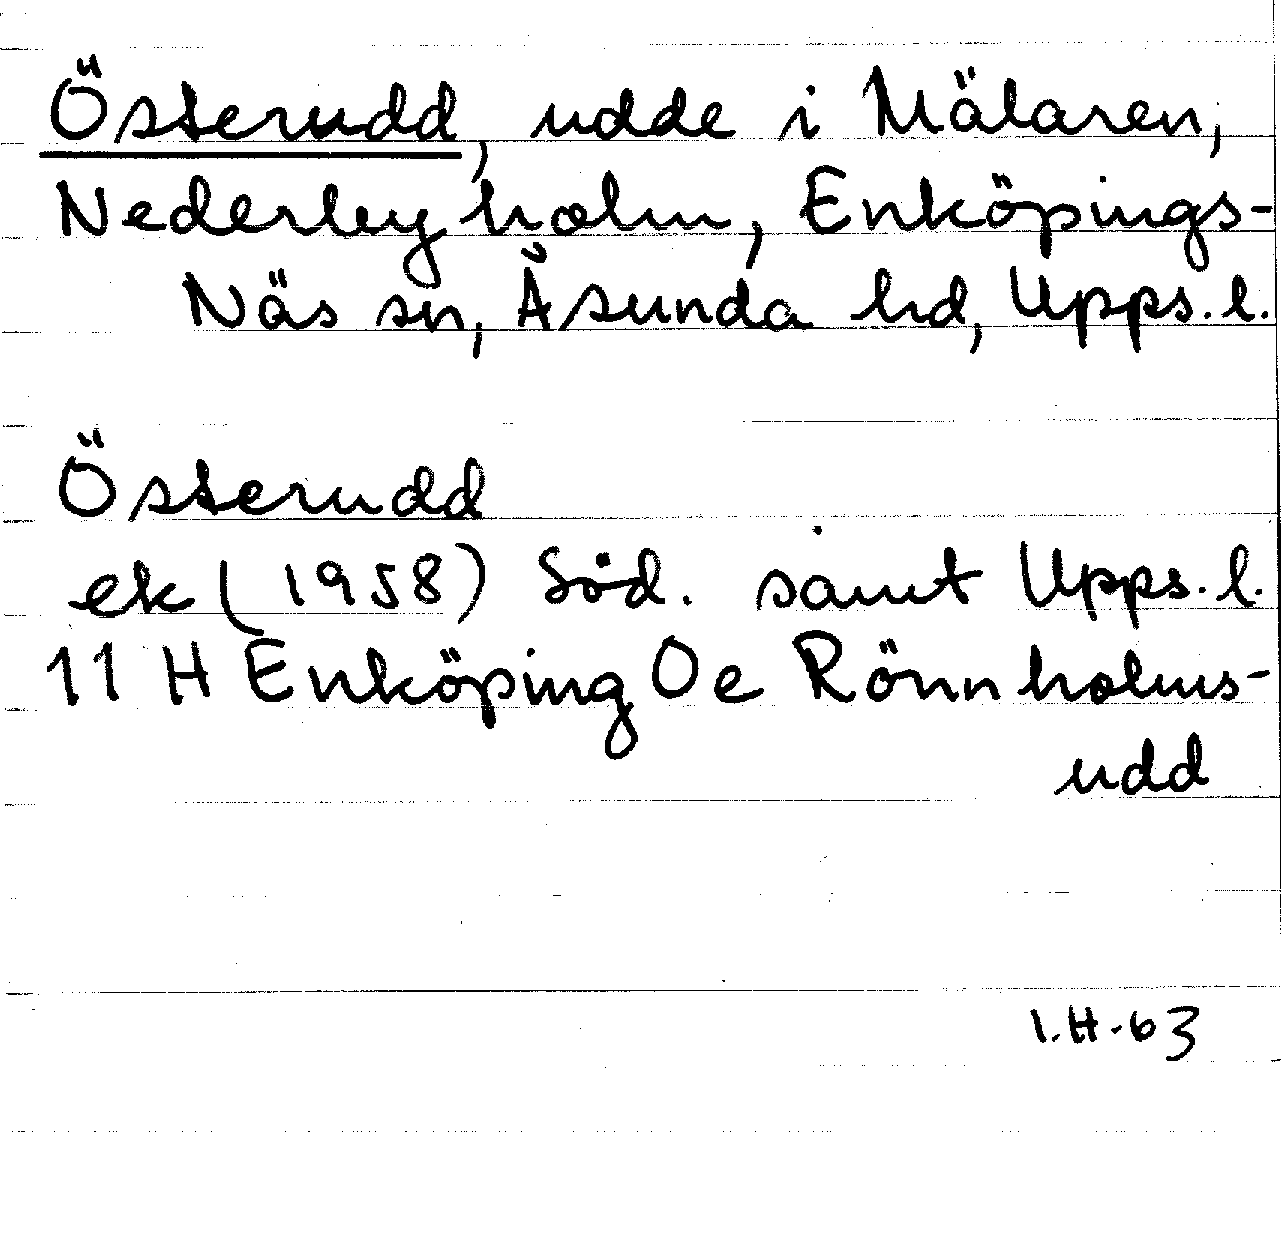 Österudd, udde i Mälaren,
Nederleyholm, Enköpings-
Näs sn, Åsunda hd, Upps. l.
Österudd
ek (1958) Söd. samt Upps. l.
11 H Enköping 0e Rönnholms-
udd
I.H-63